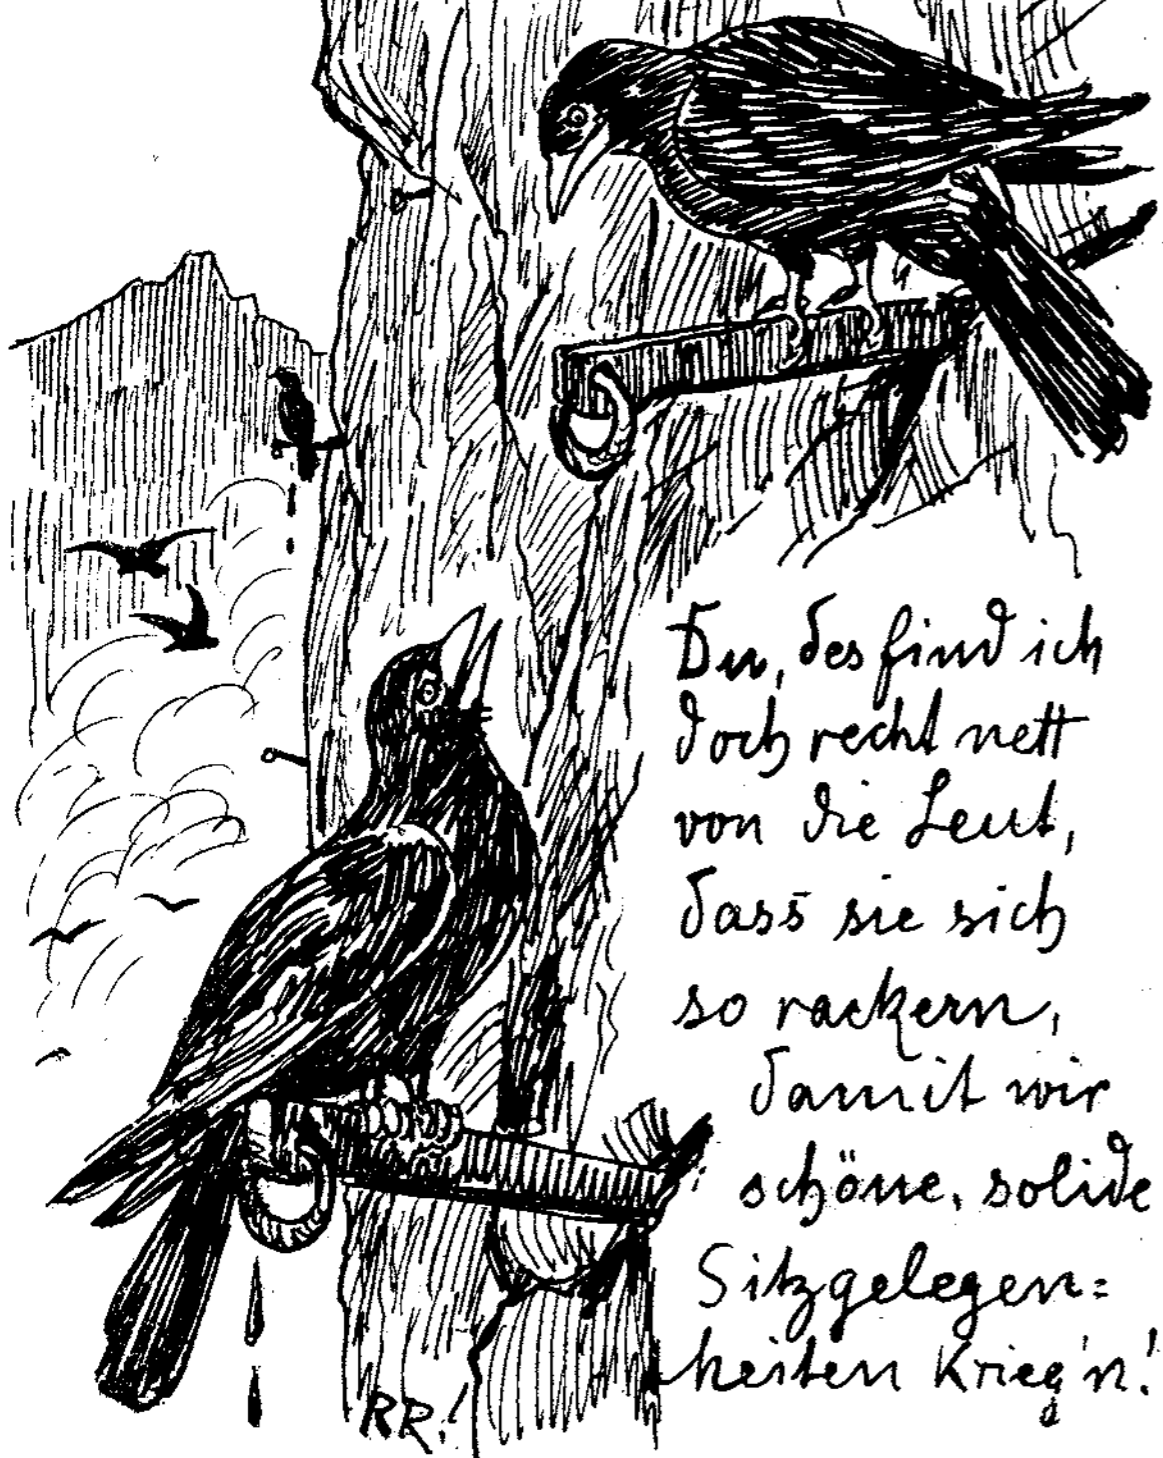 Du, des find ich
doch recht nett
von die Leut,
dass sie sich
so rackern,
damit wir
schöne, solide
Sitzgelegen=
heiten krieg'n!
RR.!